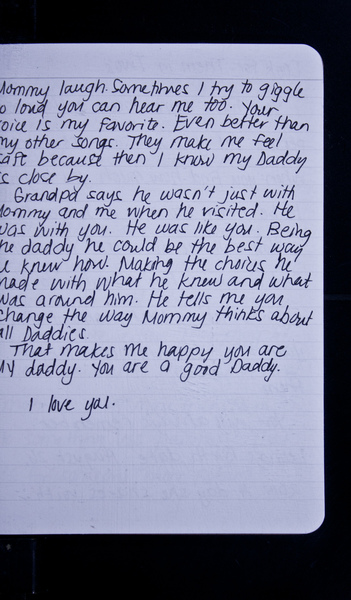 Mommy laugh. Sometimes I try to giggle
so loud you can hear me too. Your
voice is my favorite. Even better than
my other songs. They make me feel
safe because then I know my Daddy
is close by.
Grandpa says he wasn't just with
Mommy and me when he visited. He
was with you. He was like you. Being
the daddy he could be the best way
he knew how. Making the chorus he
made with what he knew and what
was around him. He tells me you
change the way Mommy thinks about
all Daddies.
That makes me happy you are
my daddy. You are a good Daddy.
I love ya!.